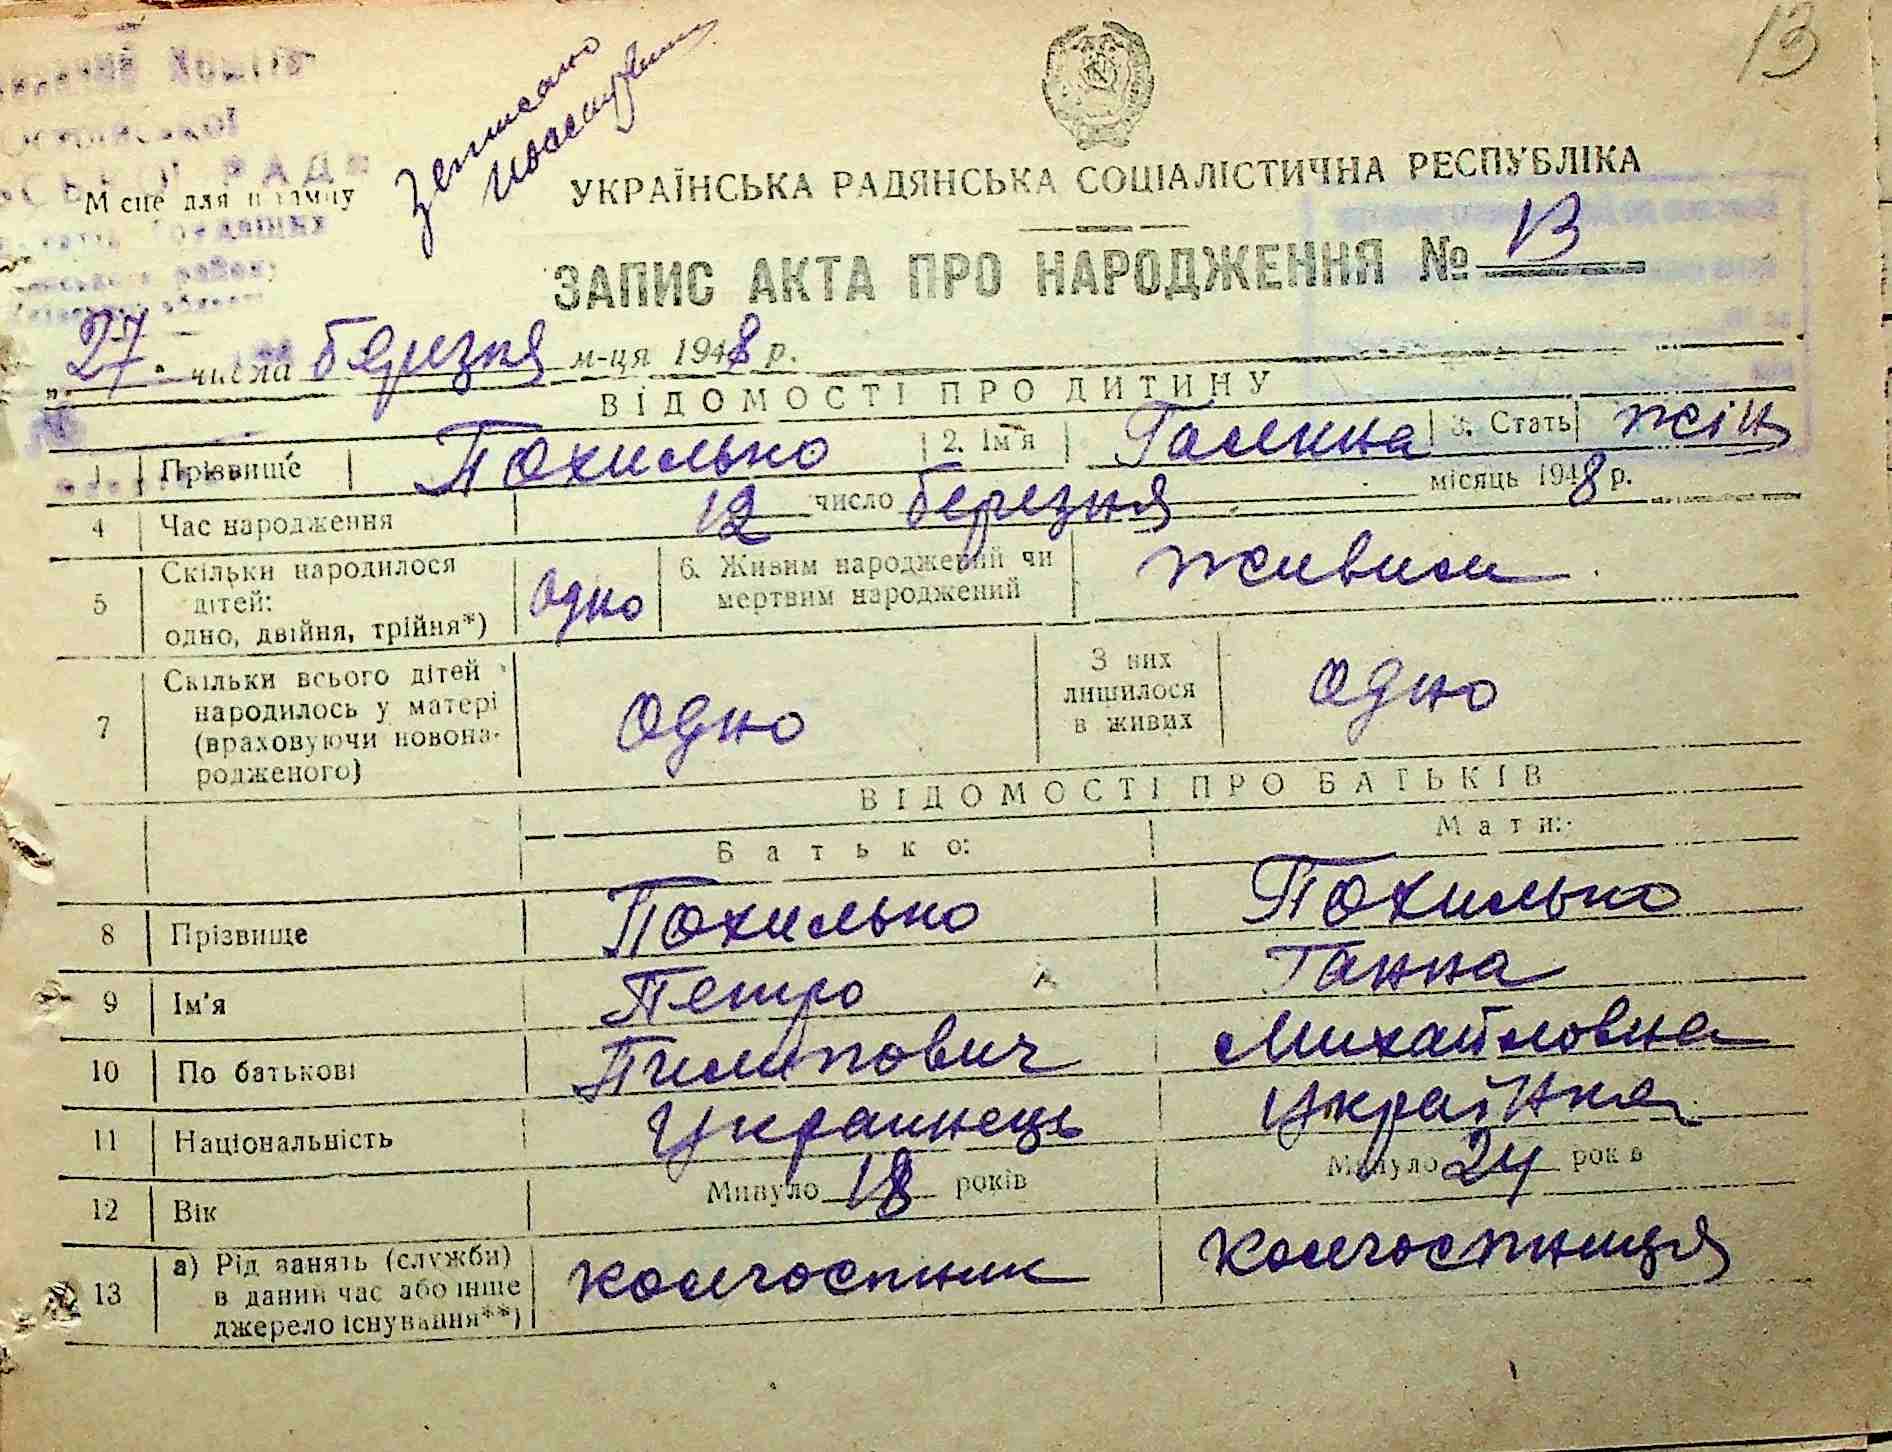 13
Записано
УКРАЇНСЬКА РАДЯНСЬКА СОЦІАЛІСТИЧНА РЕСПУБЛІКА
Місце для штампу
ЗАПИС АКТА ПРО НАРОДЖЕННЯ № 13
„27" числа березня м-ця 1948 р.
ВІДОМОСТІ ПРО ДИТИНУ
1 Прізвище Похилько 2. Ім'я Галина 3. Стать жін
4 Час народження 12 число березня місяць 1948 р.
5 Скільки народилося дітей: одно, двійня, трійня*) одно 6. Живим народжений чи мертвим народжений живим
7 Скільки всього дітей народилось у матері (враховуючи новонародженого) одно З них лишилося в живих одно
ВІДОМОСТІ ПРО БАТЬКІВ
Батько: Мати:
8 Прізвище Похилько Похилько
9 Ім'я Петро Ганна
10 По батькові Пилипович Михайловна
11 Національність Украинець Українка
12 Вік Минуло 18 років Минуло 24 років
13 а) Рід занять (служби) в даний час або інше джерело існування**) колгоспник колгоспниця